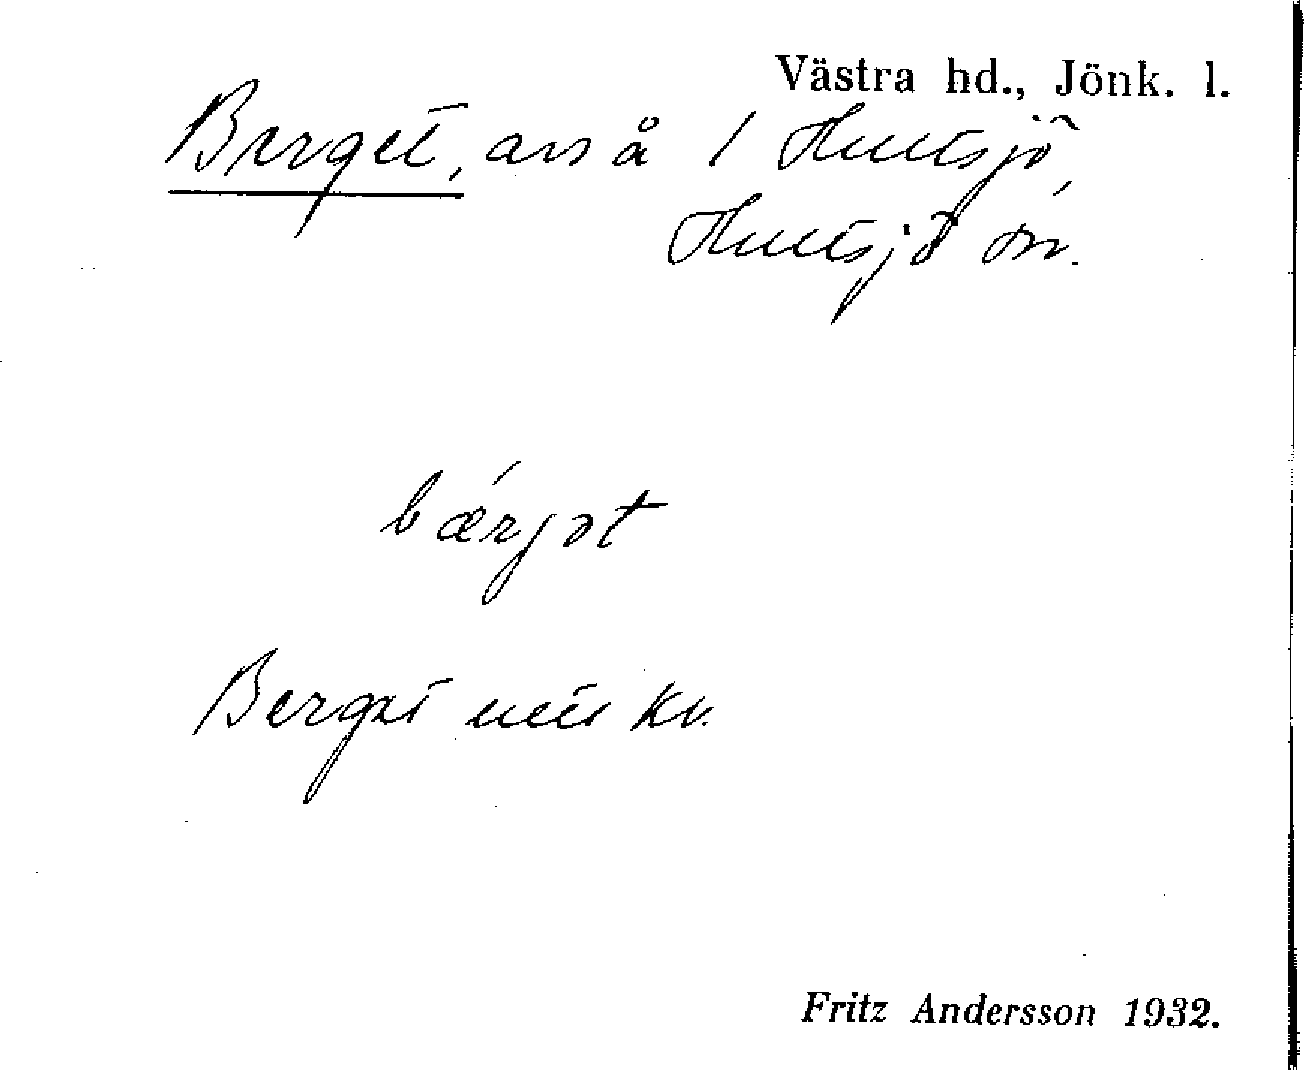 Västra hd., Jönk. l.
Berget, avs å 1 Hultsjö,
Hultsjö sn.
bǽrjət
Berget utis kv.
Fritz Andersson 1932.